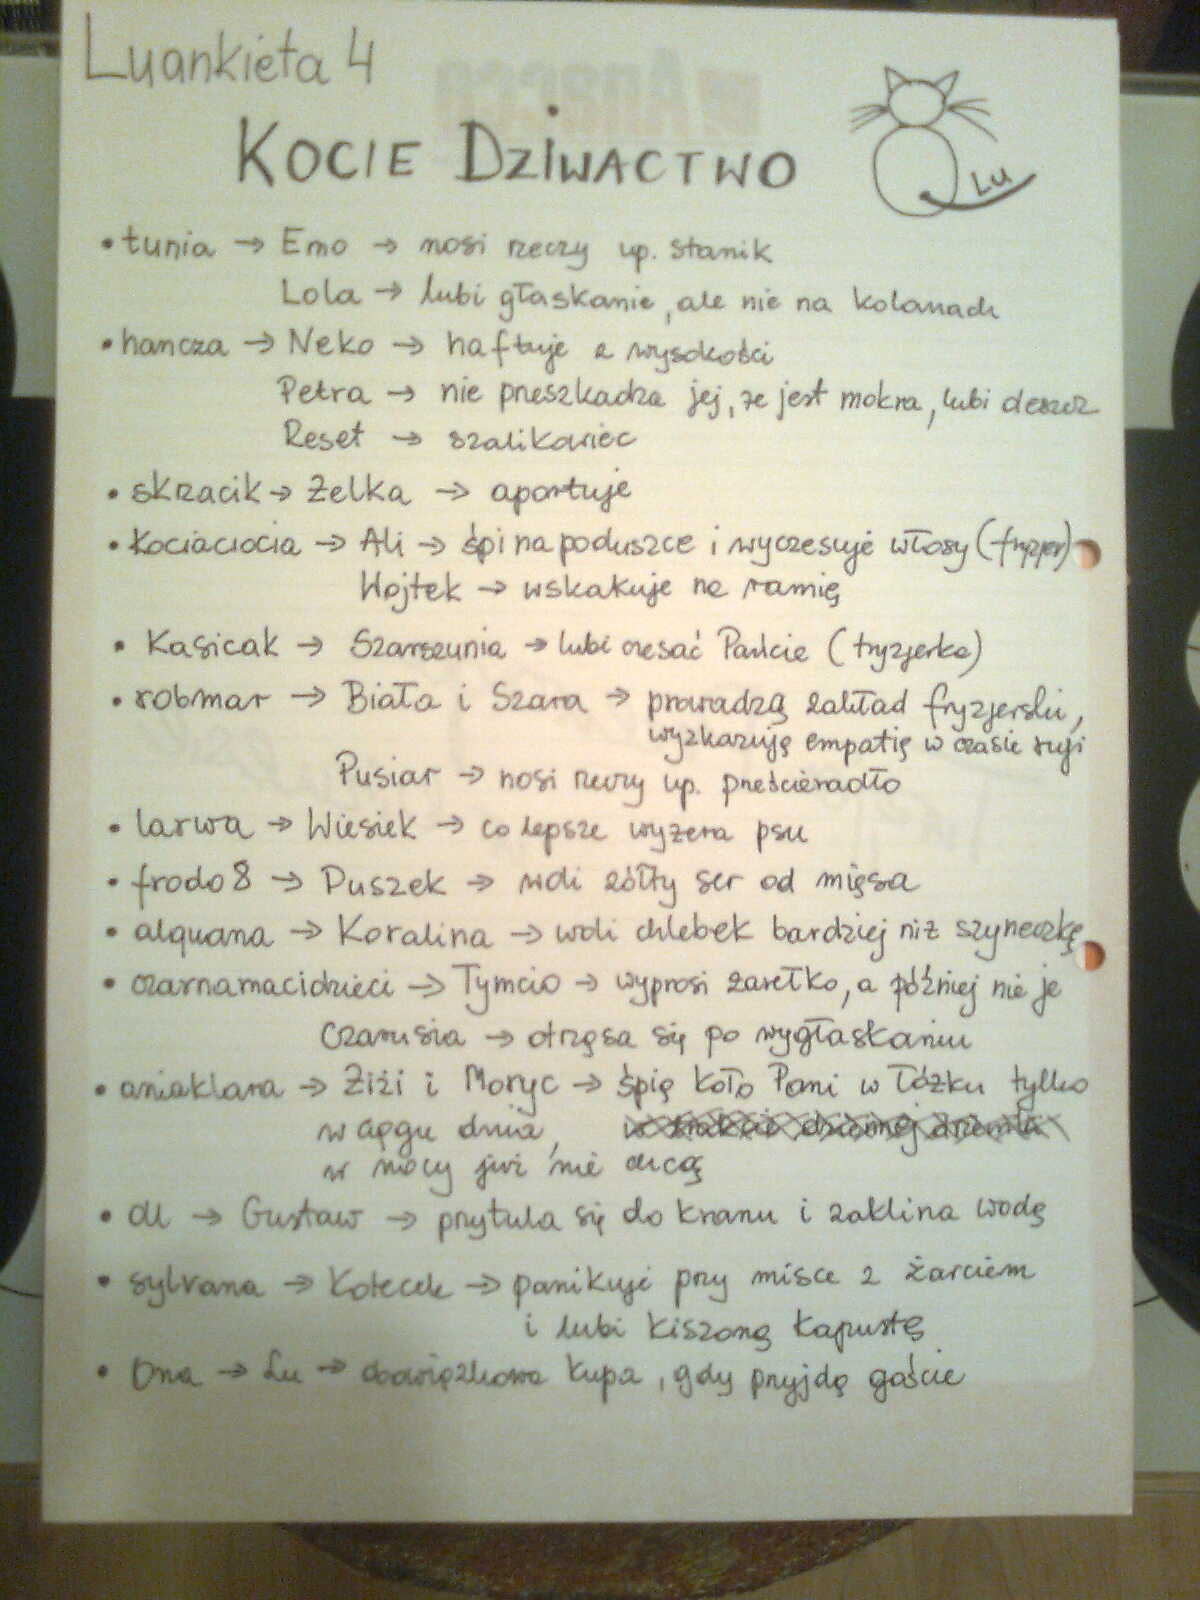 Luankieta 4
KOCIE DZIWACTWO
LU
• tunia → Emo → nosi rzeczy np. stanik
Lola → lubi głaskanie, ale nie na kolanach
• hancza → Neko → haftuje z wysokości
Petra → nie przeszkadza jej, że jest mokra, lubi deszcz
Reset → szalikowiec
• skrzacik → Zelka → aportuje
• kociaciocia → Ali → śpi na poduszce i wyczesuje włosy (fryzjer)
Wojtek → wskakuje na ramię
• Kasicak → Szarszunia → lubi czesać Pańcię (fryzjerka)
• robmar → Biała i Szara → prowadzą zakład fryzjerski,
wyzkazują empatię w czasie ruji
Pusiar → nosi rzeczy np. prześcieradło
• larwa → Wiesiek → co lepsze wyżera psu
• frodo8 → Puszek → woli żółty ser od mięsa
• alquana → Koralina → woli chlebek bardziej niż szyneczkę
• czarnamacidzieci → Tymcio → wyprosi żarełko, a później nie je
Czarusia → otrząsa się po wygłaskaniu
• aniaklara → Ziżi i Moryc → śpią koło Pani w łóżku tylko
w ciągu dnia,
w nocy już nie chcą
• dl → Gustaw → przytula się do kranu i zaklina wodę
• sylvana → Kotecek → panikuje przy misce z żarciem
i lubi kiszoną kapustę
• Ona → Lu → obowiązkowa kupa, gdy przyjdą goście